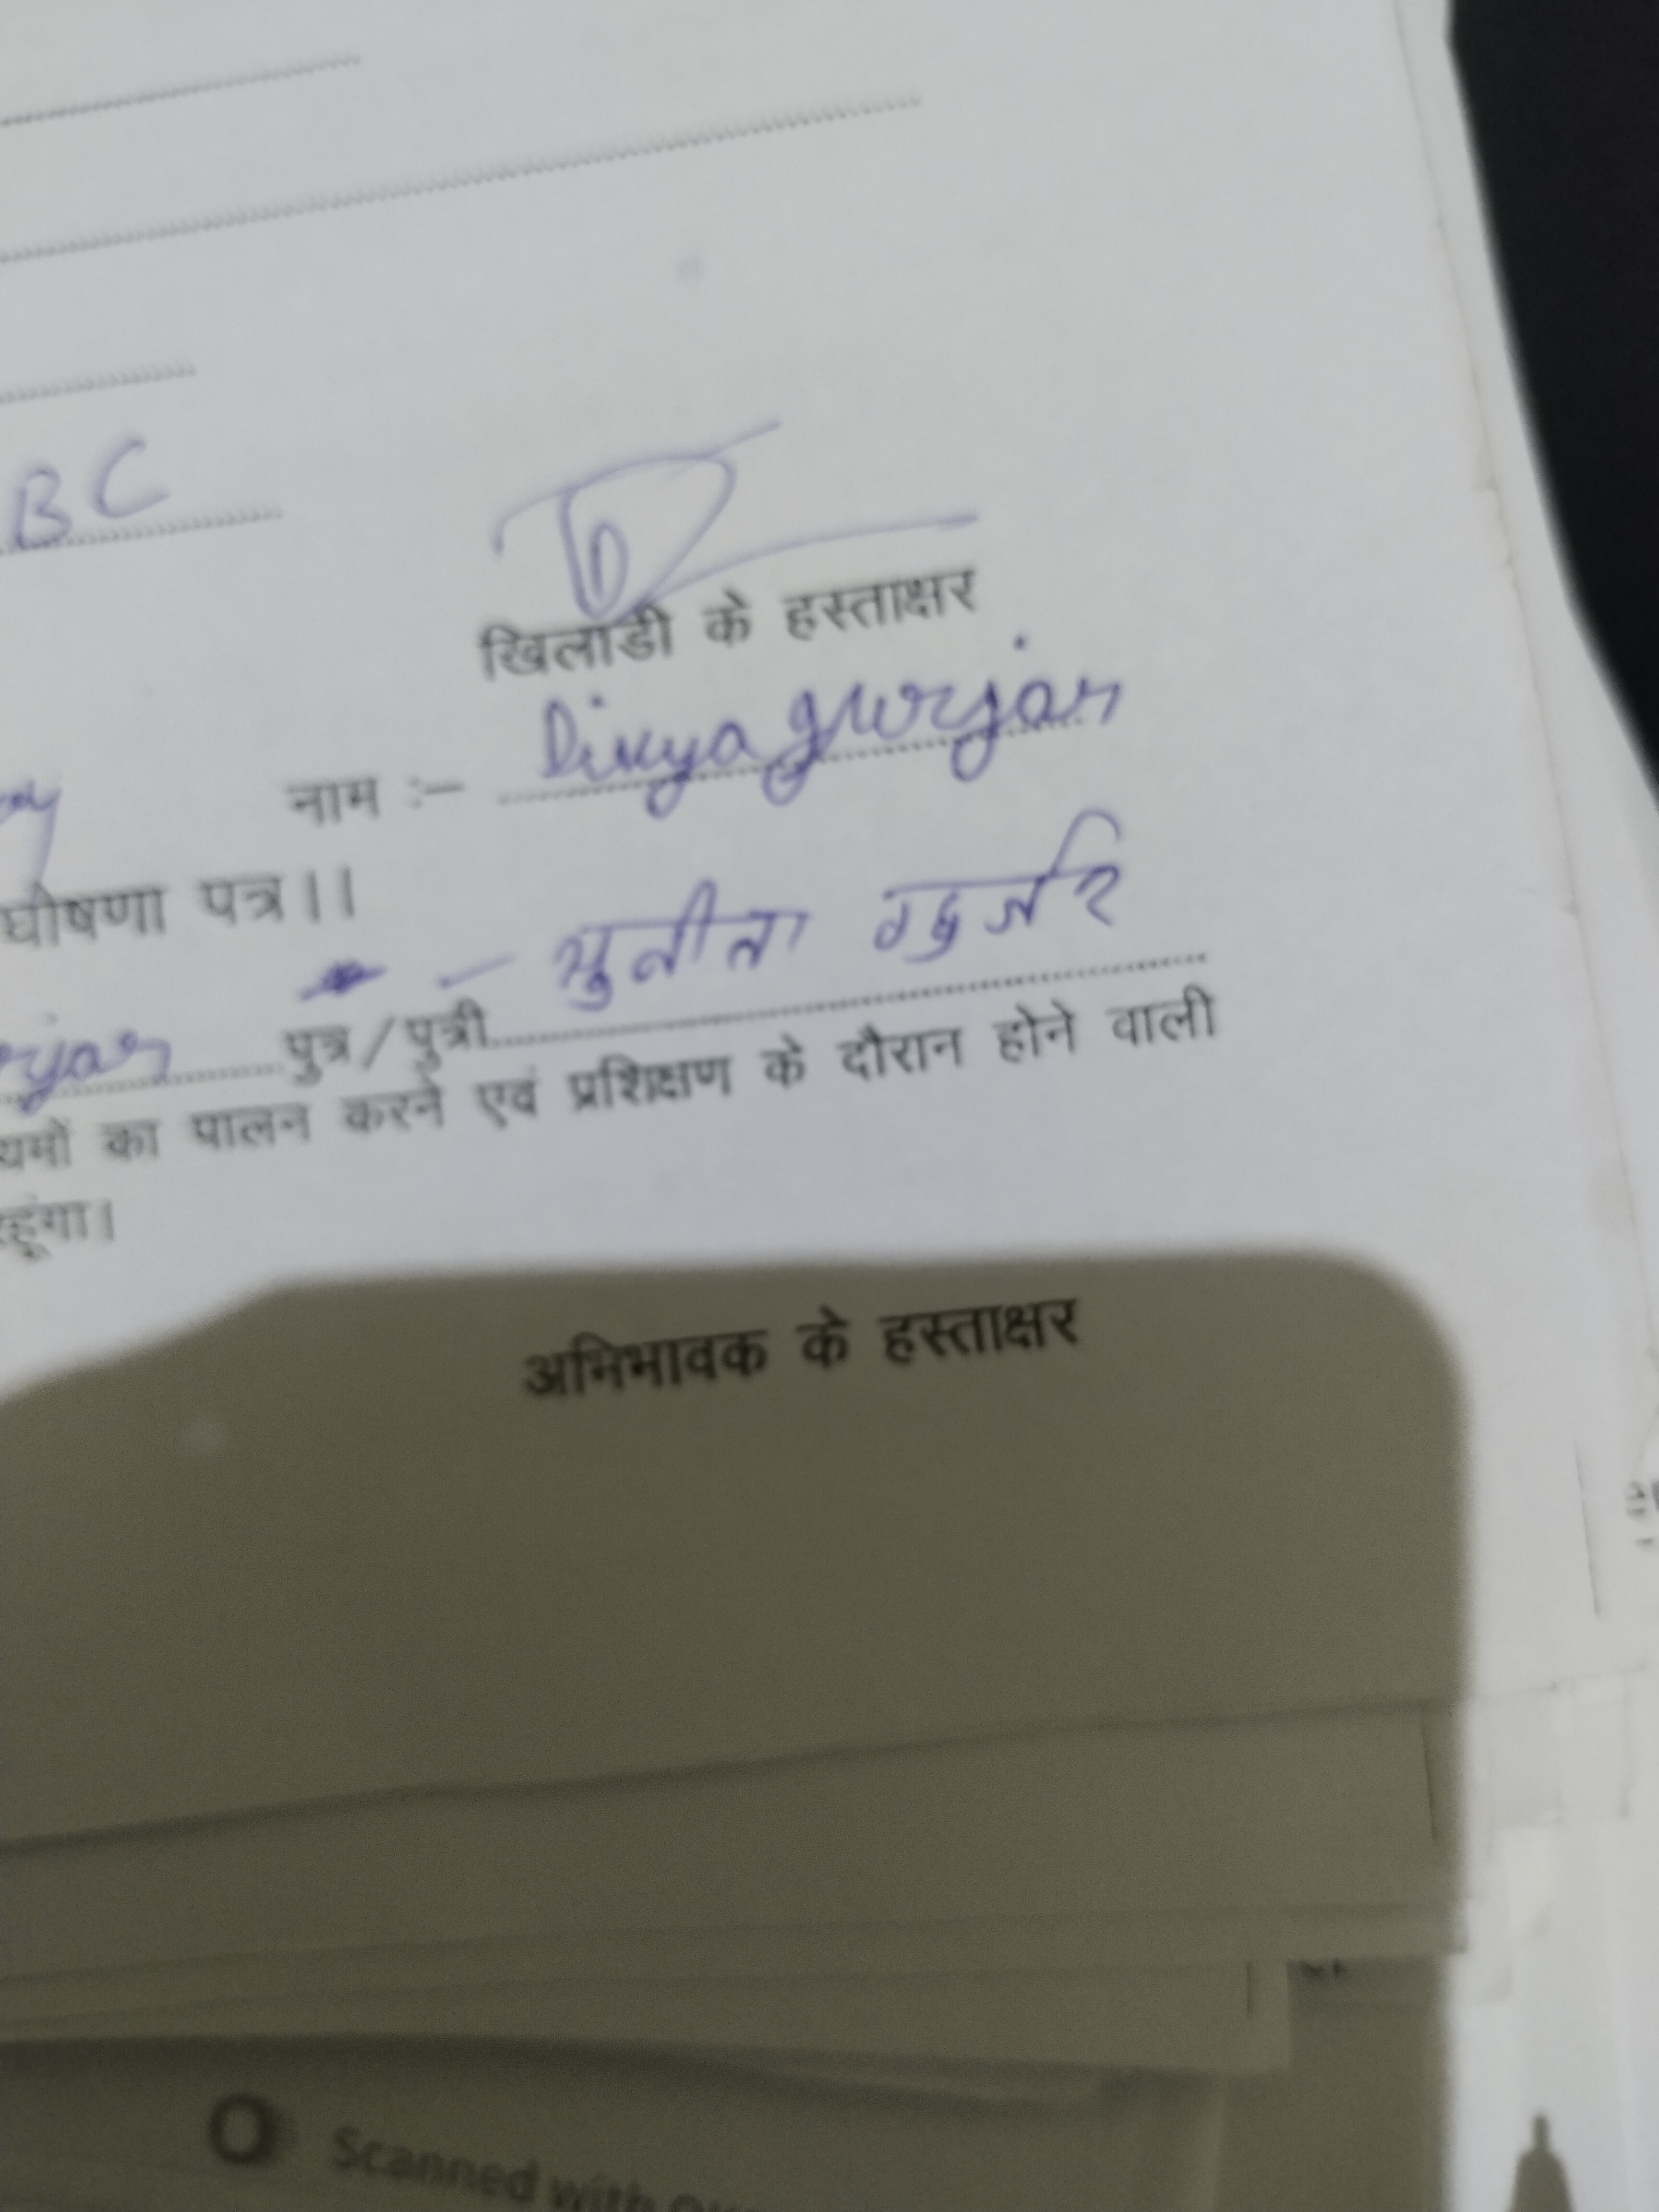 BC
खिलाडी के हस्ताक्षर
नाम :– Divya gurjar
घोषणा पत्र।।
– सुनीता गुर्जर
पुत्र/पुत्री
का पालन करने एवं प्रशिक्षण के दौरान होने वाली
रहूंगा।
अभिभावक के हस्ताक्षर
Scanned with